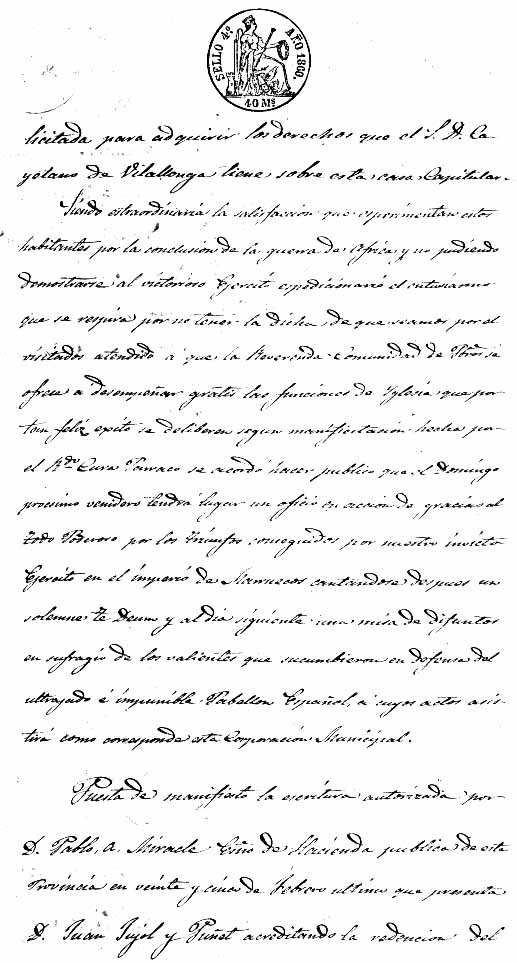 SELLO 4º AÑO 1860.
40 Mˢ
licitada para adquirir los derechos que el S. D. Ca
yetano de Vilallonga tiene sobre esta casa Capitular.
Siendo estraordinaria la satisfaccion que esperimentan estos
habitantes por la conclusion de la guerra de Africa y no pudiendo
demostrarse al victorioso Ejercito espedicionario el entusiasmo
que se respira por no tener la dicha de que seamos por el
visitados atendido á que la Reverenda Comunidad de Pbros se
ofrece a desempeñar gratis las funciones de Iglesia que por
tan feliz exito se deliberen segun manifestacion hecha por
el Rdo Cura Parraco se acordó hacer publico que el Domingo
procsimo venidero tendrá lugar un oficio en accion de gracias al
Todo Poderoso por los triunfos conseguidos por nuestro invicto
Ejercito en el imperio de Marruecos cantandose despues un
solemne Te Deum y al dia siguiente una misa de difuntos
en sufragio de los valientes que sucumbieron en defensa del
ultrajado é impunible Pabellon Español, á cuyos actos asis-
tirá como corresponde esta Corporacion Municipal.
Puesta de manifiesto la escritura autorizada por
D. Pablo, a. Miracle Esno de Hacienda publica de esta
Provincia en veinte y cinco de Febrero ultimo que presenta
D. Juan Pujol y Puñet acreditando la redencion del